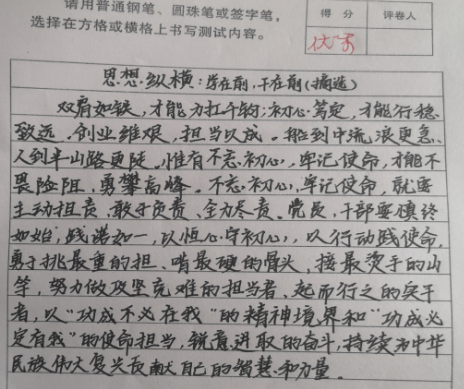 请用普通钢笔、圆珠笔或签字笔,
选择在方格或横格上书写测试内容。
得 分
评卷人
优秀
思想纵横:学在前,干在前(摘选)
双肩如铁,才能力扛千钧;初心笃定,才能行稳
致远。创业维艰,担当以成。船到中流浪更急、
人到半山路更陡。惟有不忘初心,牢记使命,才能不
畏险阻,勇攀高峰。不忘初心,牢记使命,就要
主动担责、敢于负责、全力尽责。党员、干部要慎终
如始,践诺如一,以恒心守初心,以行动践使命,
勇于挑最重的担、啃最硬的骨头、接最烫手的山
芋,努力做攻坚克难的担当者、起而行之的实干
者,以“功成不必在我”的精神境界和“功成必
定有我”的使命担当,锐意进取的奋斗,持续为中华
民族伟大复兴贡献自己的智慧和力量。